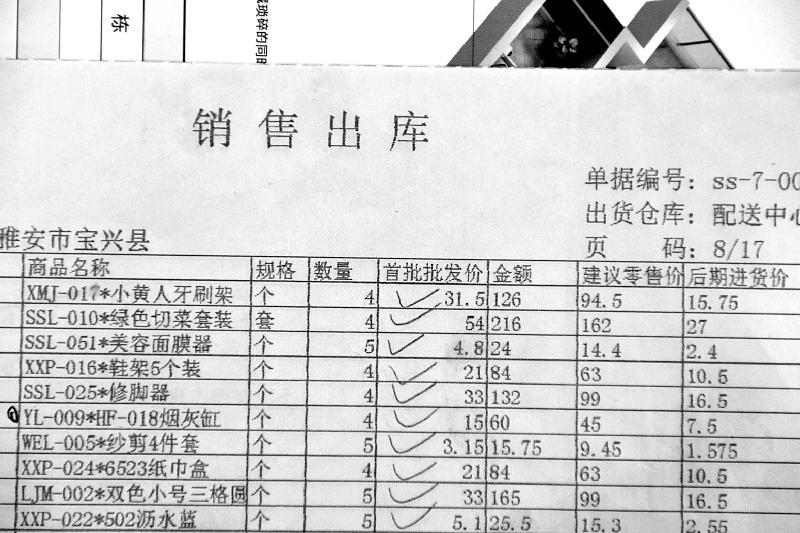 栋
琐碎的回
销售出库
单据编号: ss-7-00
出货仓库: 配送中心
雅安市宝兴县
页 码: 8/17
商品名称 规格 数量 首批批发价 金额 建议零售价 后期进货价
XMJ-017*小黄人牙刷架 个 4 31.5 126 94.5 15.75
SSL-010*绿色切菜套装 套 4 54 216 162 27
SSL-051*美容面膜器 个 5 4.8 24 14.4 2.4
XXP-016*鞋架5个装 个 4 21 84 63 10.5
SSL-025*修脚器 个 4 33 132 99 16.5
YL-009*HF-018烟灰缸 个 4 15 60 45 7.5
WEL-005*纱剪4件套 个 5 3.15 15.75 9.45 1.575
XXP-024*6523纸巾盒 个 4 21 84 63 10.5
LJM-002*双色小号三格圆 个 5 33 165 99 16.5
XXP-022*502沥水蓝 个 5 5.1 25.5 15.3 2.55